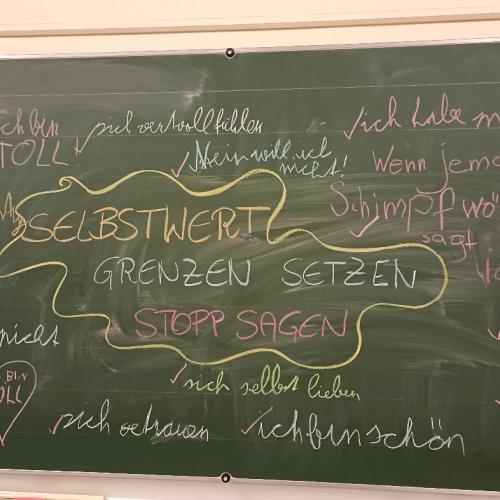 ich bin
TOLL!
sich wertvoll fühlen
ich habe
Nein will ich
nicht!
Wenn
Schimpfwö
sagt
SELBSTWERT
GRENZEN SETZEN
STOPP SAGEN
nicht
sich selbst lieben
sich getrauen
ich bin schön